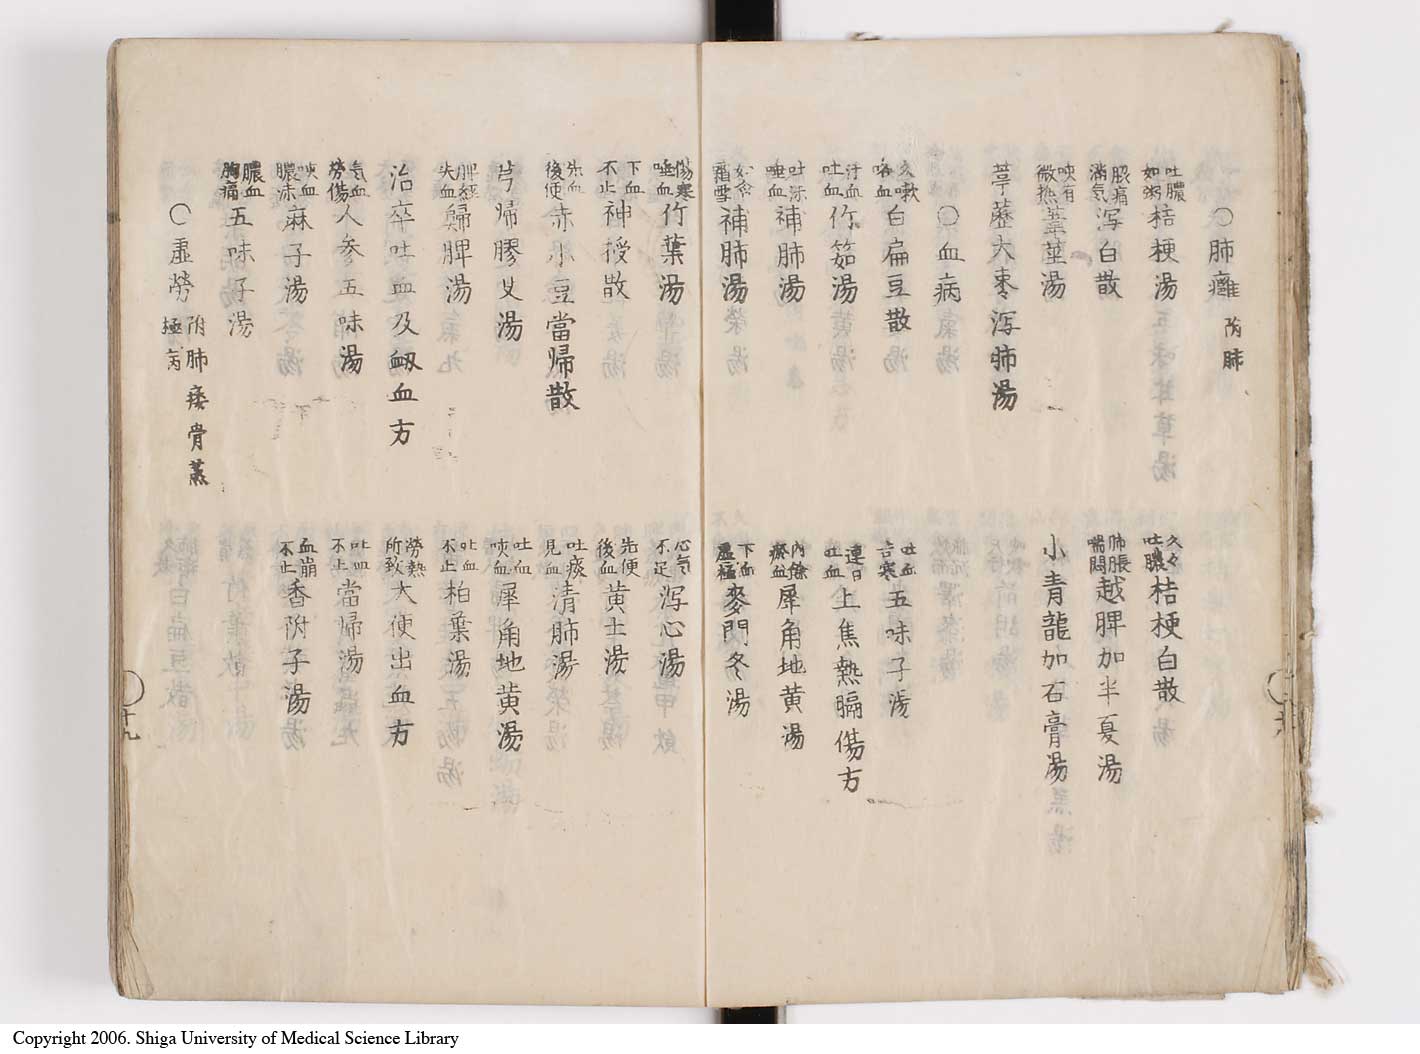 ○肺癰 附肺
吐膿如粥 桔梗湯
久々吐膿 桔梗白散
胀痛満气 泻白散
肺脹喘悶 越脾加半夏湯
咳有微热 葦莖湯
小青龍加石膏湯
葶藶大枣泻肺湯
○血病
久嗽咯血 白扁豆散
吐血言寒 五味子湯
汗血吐血 竹茹湯
連日吐血 上焦熱膈傷方
吐涎唾血 補肺湯
内餘瘀血 犀角地黄湯
霜雪 補肺湯
下血虚極 麥門冬湯
傷寒唾血 竹葉湯
心气不足 泻心湯
下血不止 神授散
先便後血 黄土湯
先血後便 赤小豆當歸散
吐痰見血 清肺湯
芎歸膠艾湯
吐血咳血 犀角地黄湯
脾経失血 歸脾湯
吐血不止 柏葉湯
治卒吐血及衂血方
勞熱所致 大便出血方
气血勞傷 人参五味湯
吐血不止 當帰湯
咳血膿涎 麻子湯
血崩不止 香附子湯
膿血胸痛 五味子湯
○虚勞 附肺痿骨蒸極病
十九
Copyright 2006. Shiga University of Medical Science Library